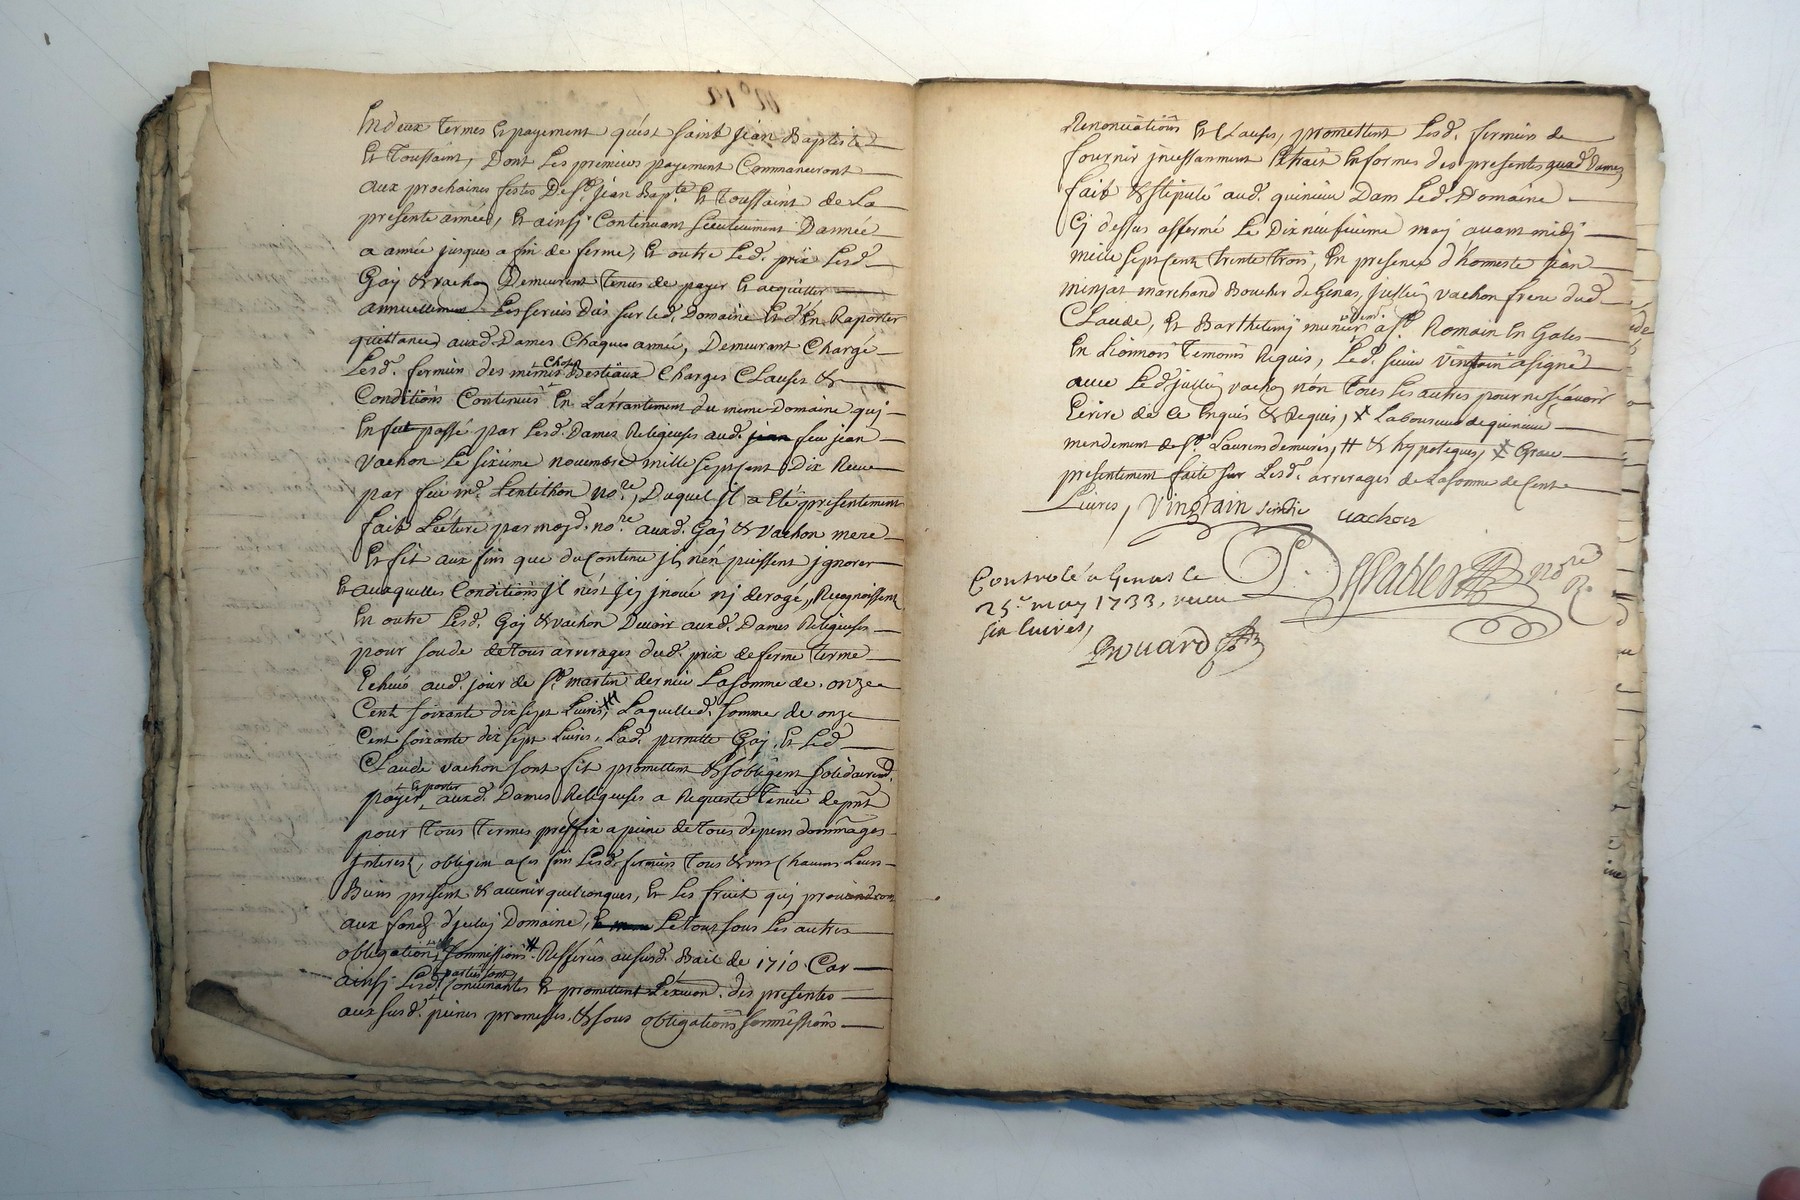 En deux termes et payement qu'est saint Jean Baptiste
et Toussaint, Dont Les premiers payement Commanceront
aux prochaines festes De st. Jean Bapte. et Toussaint de La
presente année, et ainsy Continuant Dannée
a année jusques a fin de ferme, et outre Led. prix Lesd.
Gaj & vachon Demeurent tenus de payer et acquitter
annuellement Les servis dûs sur led. Domaine et d'en Raporter
quittance auxd. Dames Chaque année, Demeurant Chargé
Lesd. fermiers des mêmes Bestiaux Charges Clauses &
Conditions Contenues En L'arrantement du meme Domaine quj
En fut passé par Lesd. Dames Religieuses aud. jean feu jean
vachon Le sixieme novembre mille sept cent Dix Receu
par feu me. Lentillon nore., Duquel jl a Eté presentement
fait Lecture par moyd. nore. auxd. Gaj & vachon mere
et fis aux fins que du Contenu jls n'en puissent jgnorer
et auxquelles Conditions jl n'est jcy jnoué nj derogé, Recognoissent
En outre Lesd. Gaj & vachon Devoir auxd. Dames Religieuses
pour soude de tous arrerages dud. prix de ferme terme
Echeus aud. jour de st. martin dernier La somme de onze
Cent soixante dix sept Livres, # Laquelled. somme de onze
Cent soixante dix sept Livres, Lad. pernette Gaj, et Led.
Claude vachon sont fis promettent & s'obligent solidairemt.
payer et porter auxd. Dames Religieuses a Requeste
pour tous termes preffix a peine de tous depens dommages
Interest, obligen a ces fin Lesd. fermiers tous & uns Chacuns Leurs
Biens present & avenir quelconques, et Les fruit quj proviendront
aux fonds d'jceluj Domaine, Le tout sous Les autres
obligations, sommissions # Refferûs aususd. Bail de 1710. Car
ainsj Lesd. parties sont Convenantes et promettent des presentes
aux susd. peines promesses, & sous obligations sommissions
Renonciations et Clauses, promettent Lesd. fermiers de
fournir jncessamment Extrait En formes des presentes auxd Dames
fait & stipulé aud. quincieu Dam Led. Domaine
Cj dessus affermé Le Dix neufvieme maj avant midj
mille sept Cent trente trois, En presence d'honneste jean
minjat marchand Boucher de Genas, jullin vachon frere dud.
Claude, et Barthelemj munier a st. Romain En Gales
En Lionnois temoins Requis, Led. sieur Vingtain a signé
avec Led. jullin vachon non tous Les autres pour ne sçavoir
Ecrire de ce Enquis & Requis, x Laboureur de quincieu
mendement de st. Laurens demurés, # & hypoteques, x Grace
presentement faite sur Lesd. arrerages de La somme de Cent
Livres, Vingtain sindic vachon
Controlé a Genas le
25e. may 1733, receu
six livres,
Rouard